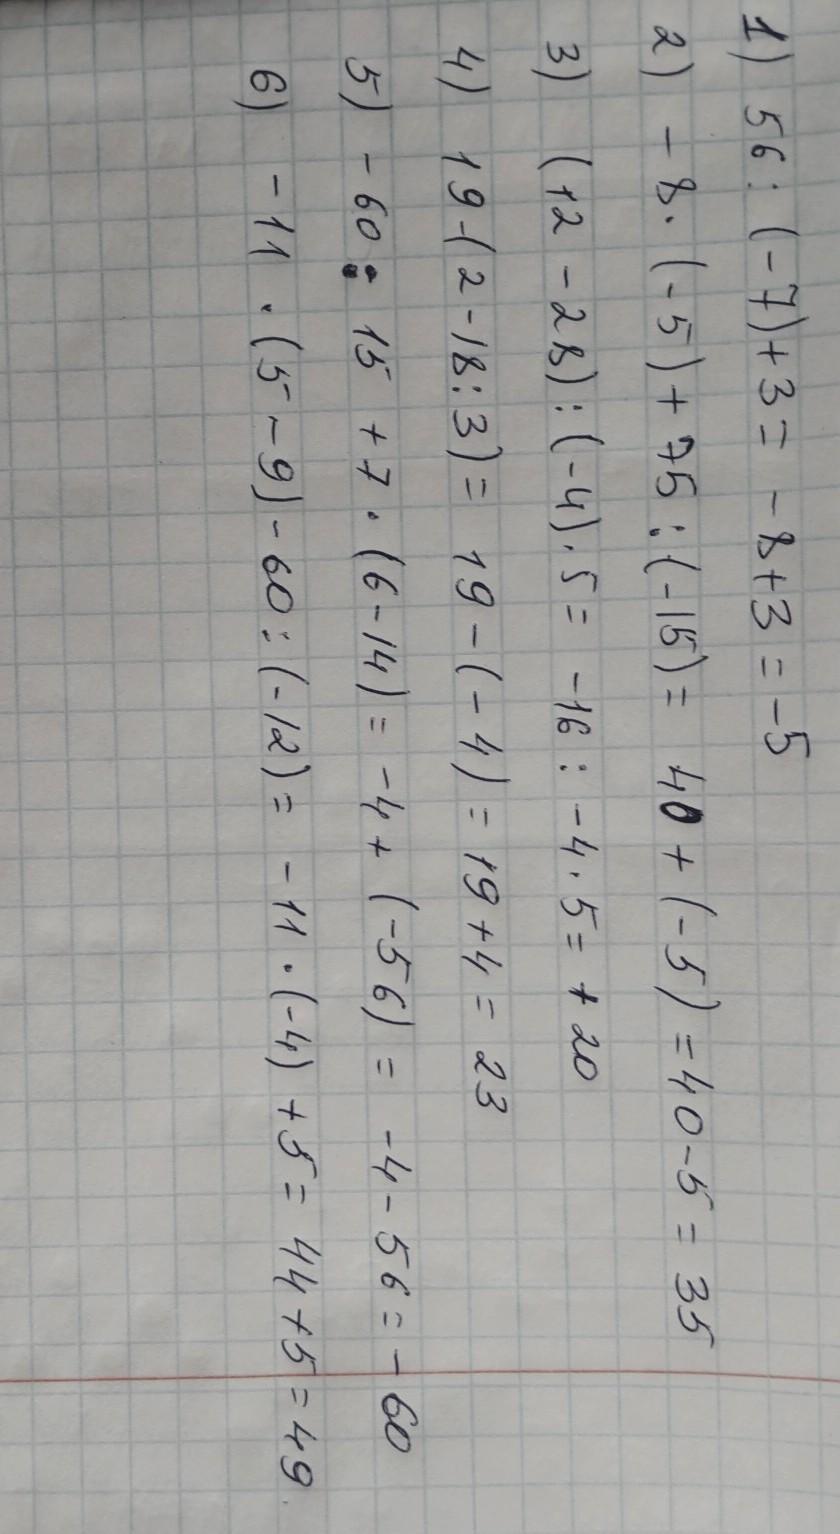 1) 56 : (-7) + 3 = -8 + 3 = -5
2) -8 · (-5) + 75 : (-15) = 40 + (-5) = 40 - 5 = 35
3) (12 - 28) : (-4) · 5 = -16 : -4 · 5 = +20
4) 19 - (2 - 18 : 3) = 19 - (-4) = 19 + 4 = 23
5) -60 : 15 + 7 · (6 - 14) = -4 + (-56) = -4 - 56 = -60
6) -11 · (5 - 9) - 60 : (-12) = -11 · (-4) + 5 = 44 + 5 = 49.